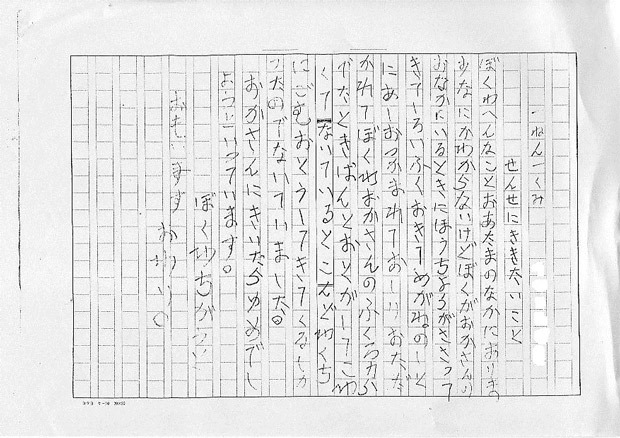 一ねん一くみ
せんせにききたいこと
ぼくわへんなことおあたまのなかにおりまつ
よなにかわからないけどぼくがおかさんの
おなかにいるときにほうちょうがささって
きていろいふくおきてめがねのしと
にあしおつかまれておしりおたた
かれてぼくわおかさんのふくろから
でたときばんとおとがしてこわ
くてないているとこんどわくち
にごむおとうしてきてくるしか
つたのでないていました。
おかさんにきいたらゆめでし
ようといっています。
ぼくわちがうと
おもいます おわり。